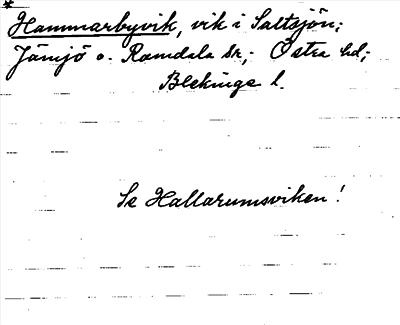 *
Hammarbyvik, vik i Saltsjön;
Jämjö o. Ramdala sk,; Östra hd;
Blekinge l.
Se Hallarumsviken!